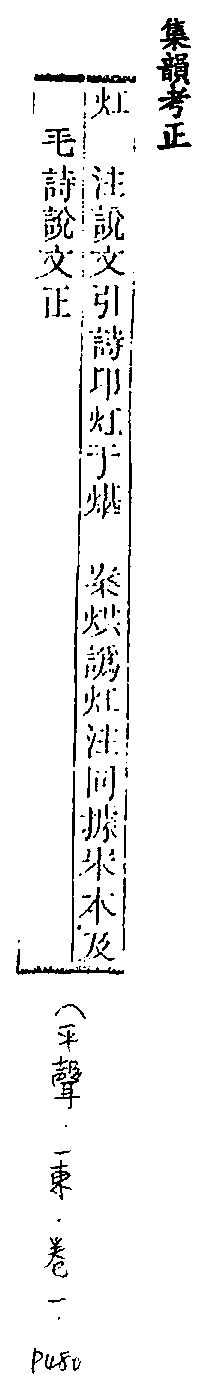 集韻考正
灴　注說文引詩卬灴于煁　案烘譌灴注同據宋本及
毛詩說文正
（平聲．一東．卷一．
P480